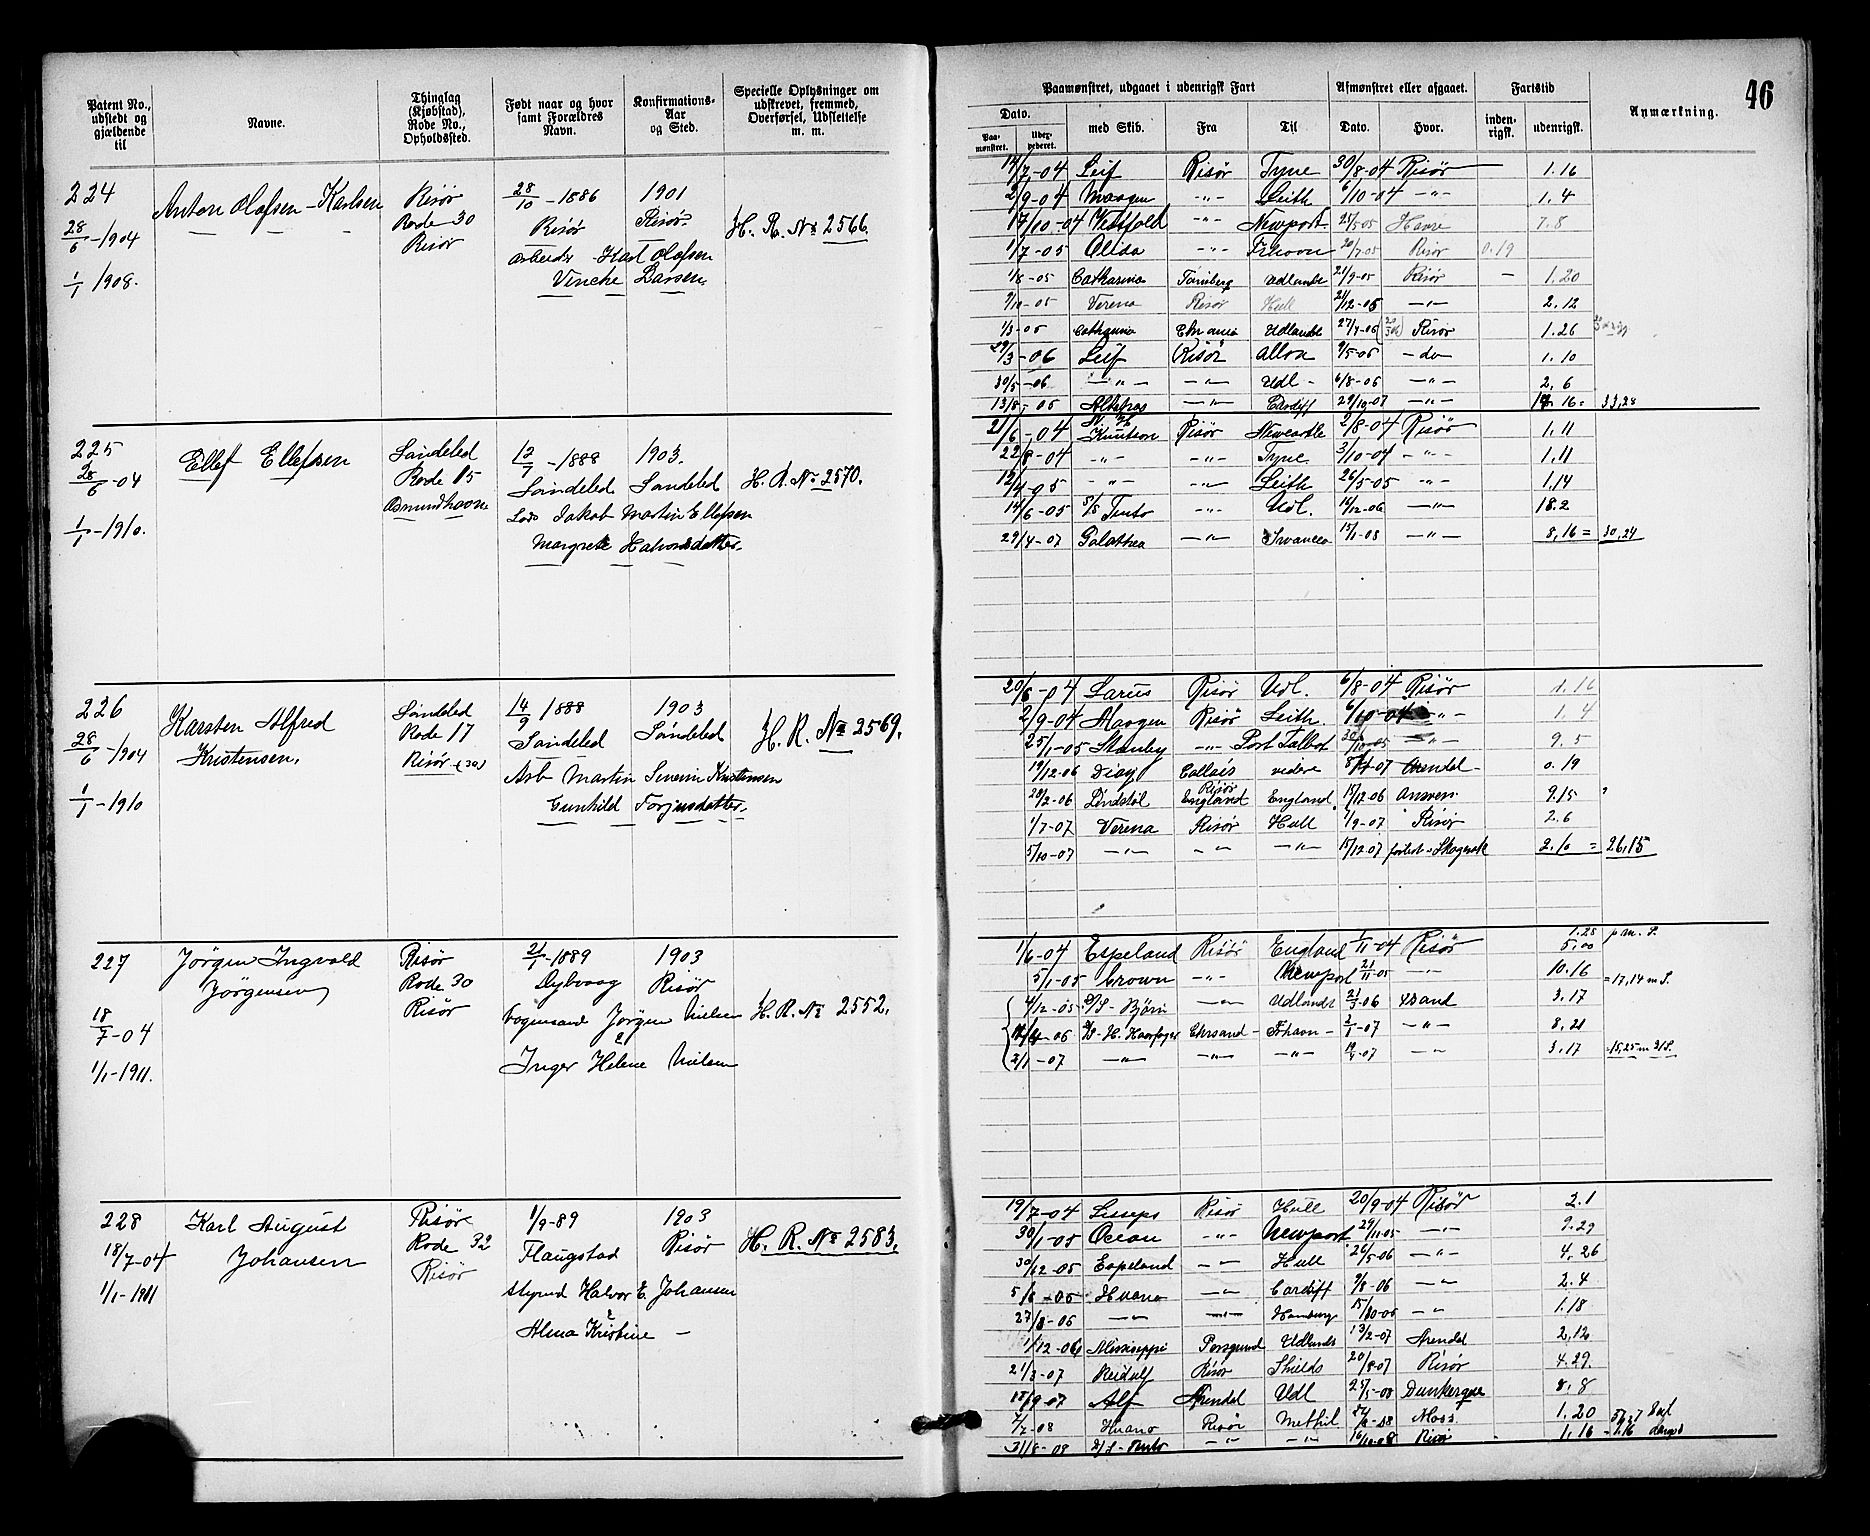 46
Patent No., udstedt og gjældende til
Navne.
Thinglag (Kjøbstad), Rode No., Opholdssted.
Født naar og hvor samt Forældres Navn.
Konfirmations-Aar og Sted.
Specielle Oplysninger om udskrevet, fremmed, Overførsel, Udslettelse m. m.
Paamønstret, udgaaet i udenrigsk Fart
Afmønstret eller afgaaet.
Fartstid
Anmærkning.
Dato.
med Skib.
Fra
Til
Dato.
Hvor.
inden-rigsk.
udenrigsk.
Paa-mønstret.
224
28/6-1904
1/1 1908.
Anton Olafsen-Karlsen
Risör
Rode 30
Risör
28/10-1886
Risör
1901
Risör
H. R. No 2566.
Arbeidr Karl Olafsen
Vincke Larsen.
14/7-04 Leif Risör Tyne 30/8-04 Risör 1.16
2/9-04 -"- Leith 6/10-04 -"- 1.4
17/10-04 Vestfold -"- Newport 21/5-05 Havre 7.8
1/7-05 Alida -"- Frhavn 20/7-05 Risör 0.19
1/8-05 Catharina Udlandet 21/9-05 Risör 1.20
9/10-05 Verena Risör Hull 21/12-05 -"- 2.12
1/3-06 Udlandet 27/4-06 Risör 1.26
29/3-06 Leif Risör Alloa 9/5-06 -do 1.10
30/5-06 -"- -"- Udl- 6/8-06 -"- 2.6
13/8-06 -"- Cardiff 29/10-07 -"- 33,28
225
28/6-04
1/1-1910.
Ellef Ellefsen
Söndeled
Rode 15
Osmundhavn
12/7-1888
Söndeled
1903.
Söndeled
H. R. No 2570.
Jakob Martin Ellefsen
Margrete Halvorsdatter.
21/6-04 Knutson Risör Newcastle 2/8-04 Risör 1.11
22/8-04 -"- -"- Tyne 3/10-04 -"- 1.11
12/4-05 -"- -"- Leith 26/5-05 -"- 1.14
14/6-05 S/S Tento -"- Udl. 14/12-06 -"- 18.2
29/4-07 Galathea -"- 15/1-08 -"- 8,16 = 30,24
226
28/6-1904
1/1-1910
Karsten Alfred
Kristensen,
Söndeled
Rode 17
Risör (30)
14/9 1888
Söndeled
1903
Söndeled
H. R. No 2569.
Arb Martin Severin Kristensen
Gunhild Torjusdatter.
20/6-04 Larus Risör Udl. 6/8-04 Risör 1.16
2/9-04 Risör Leith 6/10-04 -"- 1.4
25/1-05 Stanley -"- Port Talbot 30/10-05 -"- 9.5
19/12-06 Callais videre Arendal 0.19
20/2-06 Lindstöl Risör England England 15/12-06 9.15
1/7-07 Verena Risör Hull 1/9-07 Risör 2.6
5/10-07 -"- -"- -"- 15/12-07 forlist i Skagerak 2.10 = 26,15
227
18/7-04
1/1-1911.
Jörgen Ingvald
Jörgensen
Risör
Rode 30
Risör
21/1-1889
Dybvaag
1903
Risör
H. R. No 2552.
Vognmand Jörgen Nielsen
Inger Helene Nielsen
1/6-04 Espeland Risör England 1/11-04 Risör 1.28 5.00
5/1-05 Crown -"- Newport 21/11-05 -"- 10.16 = 17,14 m S.
4/12-05 D/S-Björn -"- Udlandt 21/3-06 Xsand 3.17
D/S-H. Haarfager Chrsand- Frhavn- 2/1-07 -"- 8,21
2/1-07 -"- -"- -"- 19/4-07 -"- 3.17 =15,25 m D/S.
228
18/7-04
1/1-1911
Karl August
Johansen
Risör
Rode 32
Risör
1/9-89
Flaugstad
1903
Risör
H. R. No 2583.
Styrmd Halvor E. Johansen
Alma Kristine -
19/7-04 Lesseps Risör Hull 20/9-04 Risör 2.1
30/1-05 Ocean -"- Newport 29/11-05 -"- 9.29
30/12-05 Espeland -"- Hull 26/5-06 -"- 4.26
5/6-06 Huano -"- Cardiff 9/8-06 -"- 2.4
27/8-06 -"- -"- Hamburg 15/10-06 -"- 1.18
1/12-06 Mississippi Porsgrund Udlandt 13/2-07 Arendal 2,12
21/3-07 Heidulf Risör Shields 20/8-07 Risör 4.29.
17/9-07 Alf Arendal Udl 25/5-08 Dunkerque 8,8
7/7-08 Huano Risör Methil Moss 1.20
31/8-08 D/S-Tento -"- -"- 16/10-08 Risör 1,16